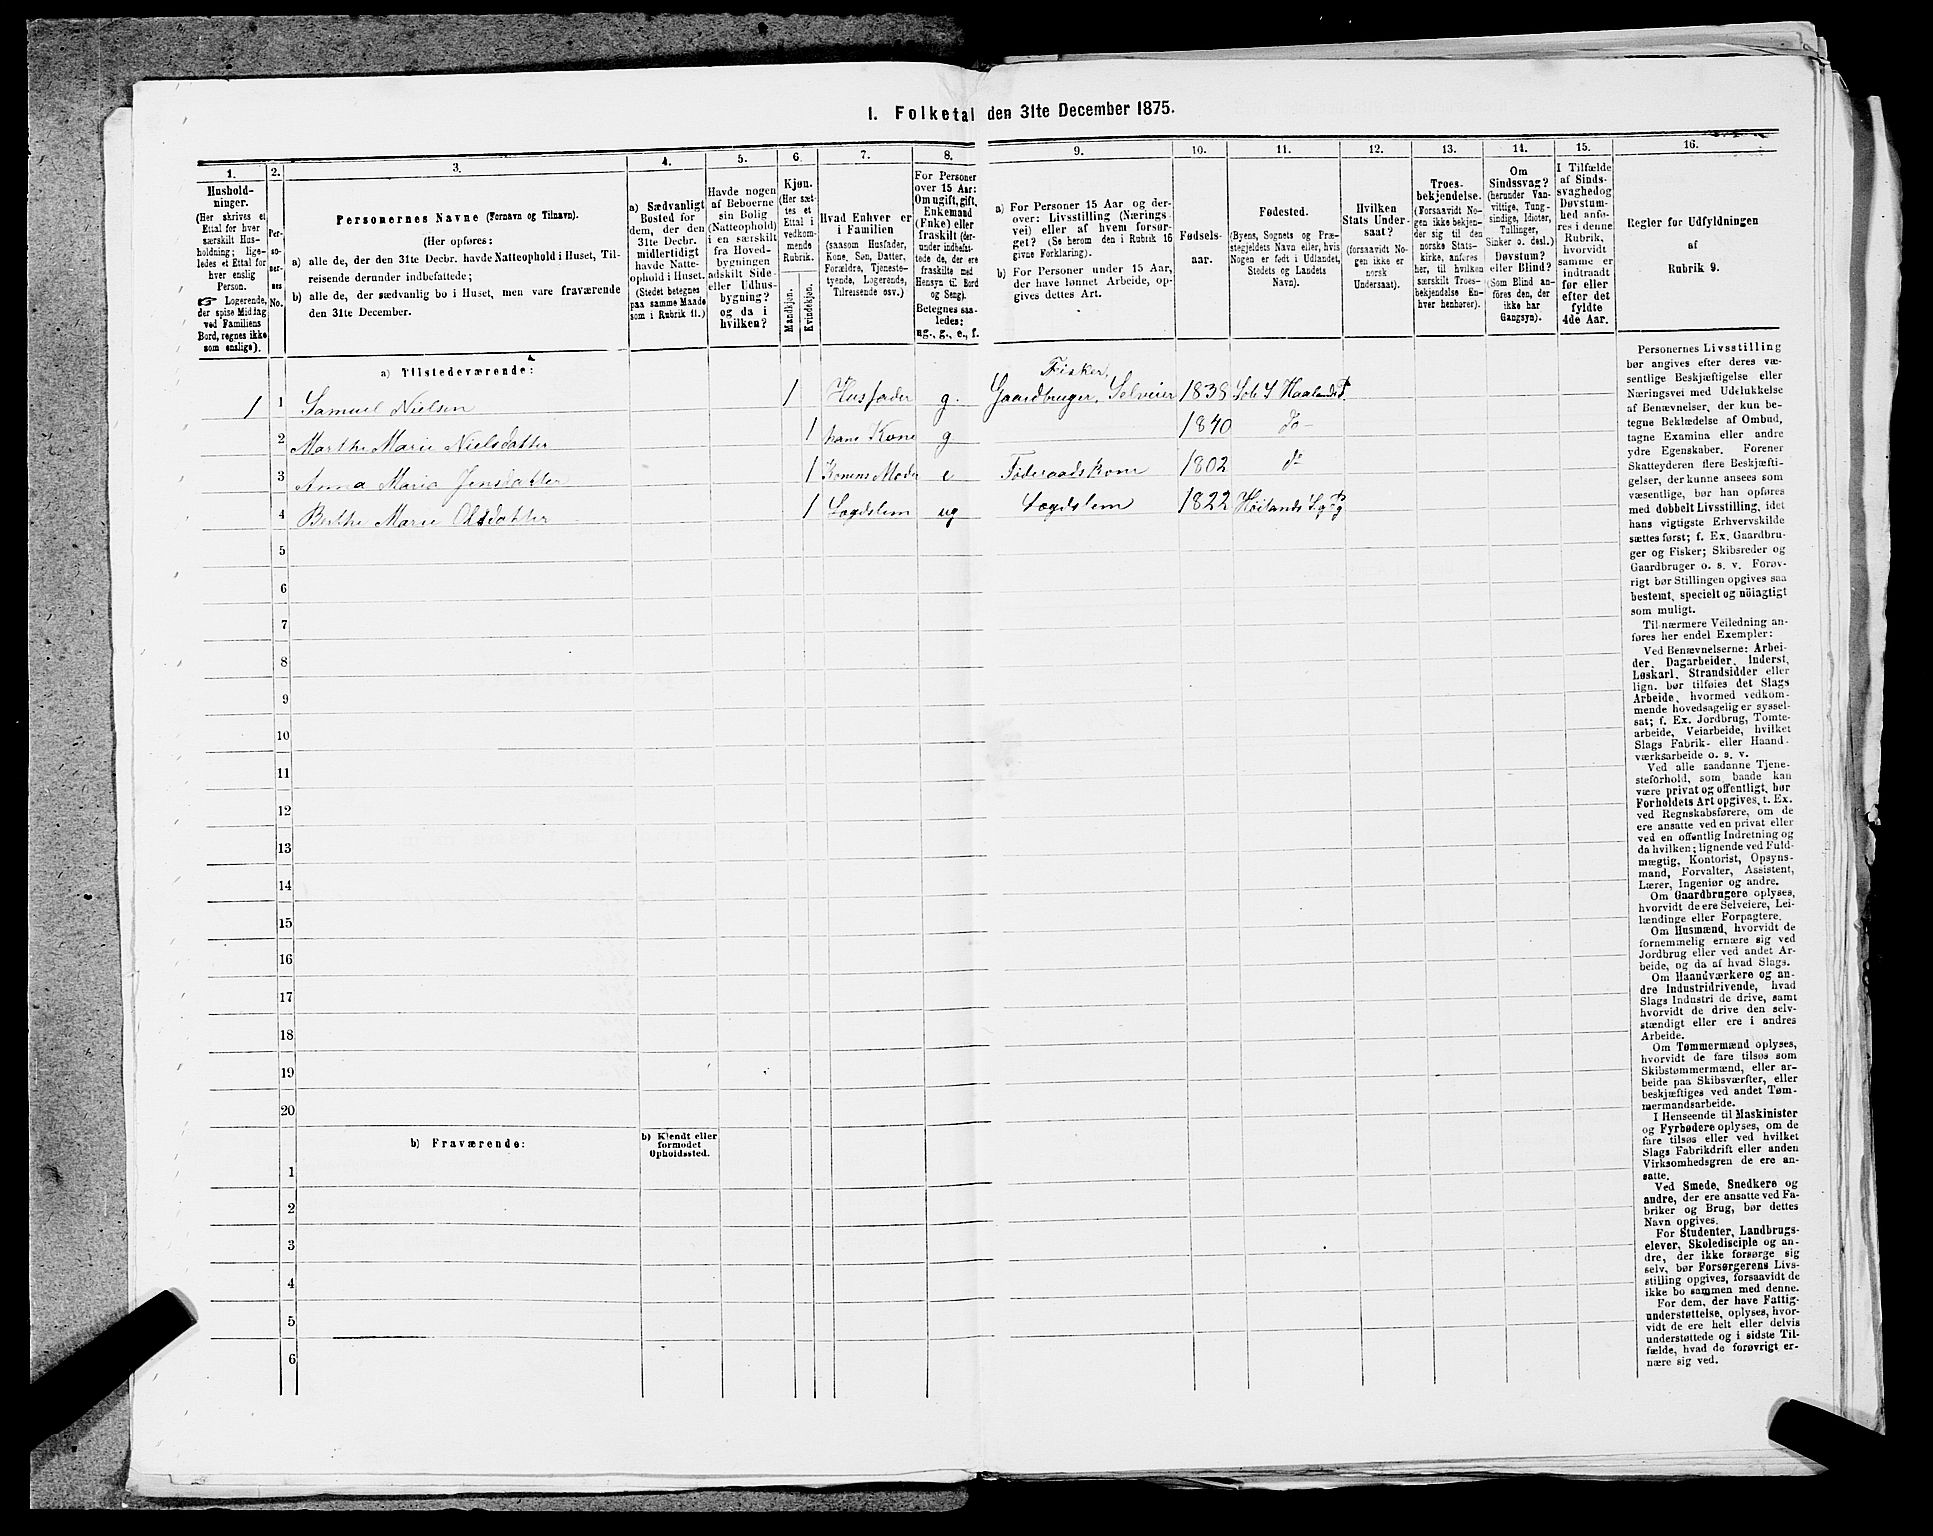 I. Folketal den 31te December 1875.
1. 2. 3. 4. 5. 6. 7. 8. 9. 10. 11. 12. 13. 14. 15. 16.
Hushold-
ninger.
(Her skrives et
Ettal for hver
særskilt Hus-
holdning; lige-
ledes et Ettal for
hver enslig
Person.
☞ Logerende,
der spise Middag
ved Familiens
Bord, regnes ikke
som enslige).
Per-
so-
ner-
nes
No.
Personernes Navne (Fornavn og Tilnavn).
(Her opføres:
a) alle de, der den 31te Decbr. havde Natteophold i Huset, Til-
reisende derunder indbefattede;
b) alle de, der sædvanlig bo i Huset, men vare fraværende
den 31te December.
a) Sædvanligt
Bosted for
dem, der den
31te Decbr.
midlertidigt
havde Natte-
ophold i Huset.
(Stedet betegnes
paa samme Maade
som i Rubrik 11.)
Havde nogen
af Beboerne
sin Bolig
(Natteophold)
i en særskilt
fra Hoved-
bygningen
adskilt Side-
eller Udhus-
bygning?
og da i
hvilken?
Kjøn.
(Her sæt-
tes et
Ettal i
vedkom-
mende
Rubrik.
Mandkjøn.
Kvindekjøn.
Hvad Enhver er
i Familien
(saasom Husfader,
Kone, Søn, Datter,
Forældre, Tjeneste-
tyende, Logerende,
Tilreisende osv.)
For Personer
over 15 Aar:
Om ugift, gift,
Enkemand
(Enke) eller
fraskilt (der-
under indbefat-
tede de, der ere
fraskilte med
Hensyn til Bord
og Seng).
Betegnes saa-
ledes:
ug., g., e., f.
a) For Personer 15 Aar og der-
over: Livsstilling (Nærings-
vei) eller af hvem forsør-
get? (Se herom den i Rubrik 16
givne Forklaring).
b) For Personer under 15 Aar,
der have lønnet Arbeide, op-
gives dettes Art.
Fødsels-
aar.
Fødested.
(Byens, Sognets og Præ-
stegjeldets Navn eller, hvis
Nogen er født i Udlandet,
Stedets og Landets
Navn).
Hvilken
Stats Under-
saat?
(forsaavidt No-
gen ikke er
norsk
Undersaat).
Troes-
bekjendelse.
(Forsaavidt No-
gen ikke bekjen-
der sig til den
norske Stats-
kirke, anføres
her, til hvilken
særskilt Troes-
bekjendelse En-
hver henhører).
Om
Sindssvag?
(herunder Van-
vittige, Tung-
sindige, Idioter,
Tullinger,
Sinker o. desl.)
Døvstum?
eller Blind?
(Som Blind an-
føres den, der
ikke har
Gangsyn).
I Tilfælde
af Sinds-
svaghed og
Døvstum-
hed anfø-
res i denne
Rubrik,
hvorvidt
samme er
indtraadt
før eller
efter det
fyldte
4de Aar.
Regler for Udfyldningen
af
Rubrik 9.
a) Tilstedeværende:
Fisker,
1 1 Samuel Nielsen 1 Husfader g. Gaardbruger, Selveier 1838 Sole S Haalands P.
2 Marthe Marie Nielsdatter 1 hans Kone g 1840 Do
3 Anna Maria Jensdatter 1 Konens Moder e Føderaadskone 1802 do
4 Berthe Marie Olsdatter 1 Lægdslem ug Lægdslem 1822 Høilands S. og P
5
6
7
8
9
10
11
12
13
14
15
16
17
18
19
20
b) Fraværende:
b) Kjendt eller
formodet
Opholdssted.
1
2
3
4
5
6
Personernes Livsstilling
bør angives efter deres væ-
sentlige Beskjæftigelse eller
Næringsvei med Udelukkelse
af Benævnelser, der kun be-
tegne Beklædelse af Ombud,
tagne Examina eller andre
ydre Egenskaber. Forener
Skatteyderen flere Beskjæfti-
gelser, der kunne ansees som
væsentlige, bør han opføres
med dobbelt Livsstilling, idet
hans vigtigste Erhvervskilde
sættes først; f. Ex. Gaardbru-
ger og Fisker; Skibsreder og
Gaardbruger o. s. v. Forøv-
rigt bør Stillingen opgives saa
bestemt, specielt og nöiagtigt
som muligt.
Til nærmere Veiledning an-
føres her endel Exempler:
Ved Benævnelserne: Arbei-
der, Dagarbeider, Inderst,
Løskarl, Strandsidder eller
lign. bør tilføies det Slags
Arbeide, hvormed vedkom-
mende hovedsagelig er syssel-
sat; f. Ex. Jordbrug, Tomte-
arbeide, Veiarbeide, hvilket
Slags Fabrik- eller Haand-
værksarbeide o. s. v.
Ved alle saadanne Tjene-
steforhold, som baade kan
være privat og offentligt, bør
Forholdets Art opgives, t. Ex.
ved Regnskabsførere, om de
ere ansatte ved en privat eller
ved en offentlig Indretning og
da hvilken; lignende ved Fuld-
mægtig, Kontorist, Opsyns-
mand, Forvalter, Assistent,
Lærer, Ingeniør og andre.
Om Gaardbrugere oplyses,
hvorvidt de ere Selveiere, Lei-
lændinge eller Forpagtere.
Om Husmænd, hvorvidt de
fornemmelig ernære sig ved
Jordbrug eller ved andet Ar-
beide, og da af hvad Slags.
Om Haandværkere og an-
dre Industridrivende, hvad
Slags Industri de drive, samt
hvorvidt de drive den selv-
stændigt eller ere i andres
Arbeide.
Om Tømmermænd oplyses,
hvorvidt de fare tilsøs som
Skibstømmermænd, eller ar-
beide paa Skibsværfter, eller
beskjæftiges ved andet Tøm-
mermandsarbeide.
I Henseende til Maskinister
og Fyrbødere oplyses, om de
fare tilsøs eller ved hvilket
Slags Fabrikdrift eller anden
Virksomhedsgren de ere an-
satte.
Ved Smede, Snedkere og
andre, der ere ansatte ved Fa-
briker og Brug, bør dettes
Navn opgives.
For Studenter, Landbrugs-
elever, Skoledisciple og an-
dre, der ikke forsørge sig
selv, bør Forsørgerens Livs-
stilling opgives, forsaavidt de
ikke bo sammen med denne.
For dem, der have Fattig-
understøttelse, oplyses, hvor-
vidt de ere helt eller delvis
understøttede og i sidste Til-
fælde, hvad de forøvrigt er-
nære sig ved.